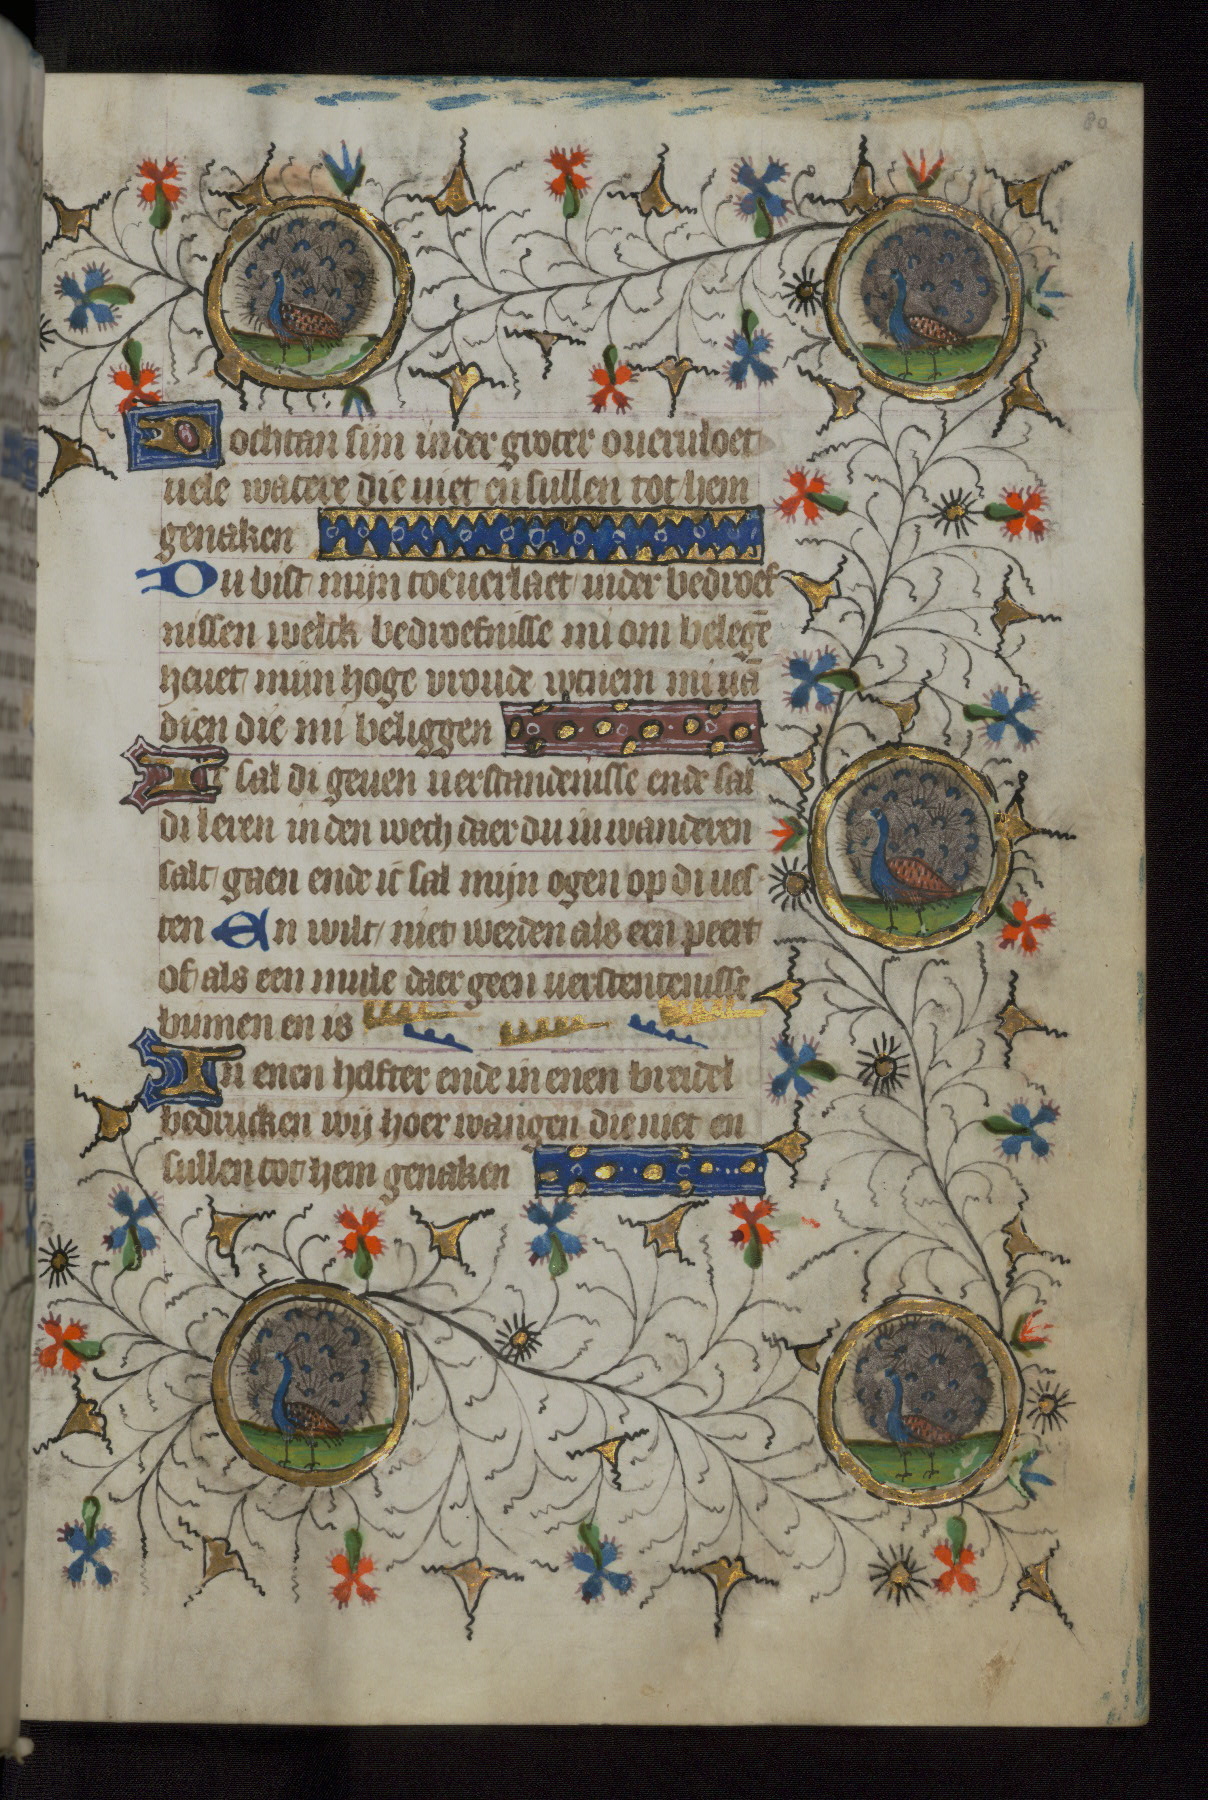 80
Dochtan sijn inder groter oueruloet
uele watere die niet en sullen tot hem
genaken
Du bist mijn toeuerlaet inder bedroef
nissen welck bedroefnisse mi om belegē
heuet mijn hoge vroude vernem mi uā
dien die mi beliggen
Ic sal di geuen uerstandenisse ende sal
di leren in den wech daer du in wanderen
salt gaen ende ic sal mijn ogen op di ues
ten En wilt niet werden als een peert
of als een mule daer geen uerstentenisse
binnen en is
In enen helfter ende in enen breidel
bedrucken wij hoer wangen die niet en
sullen tot hem genaken